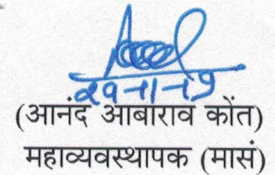 २१-११-१७
(आनंद आबाराव कोंत)
महाव्यवस्थापक (मासं)